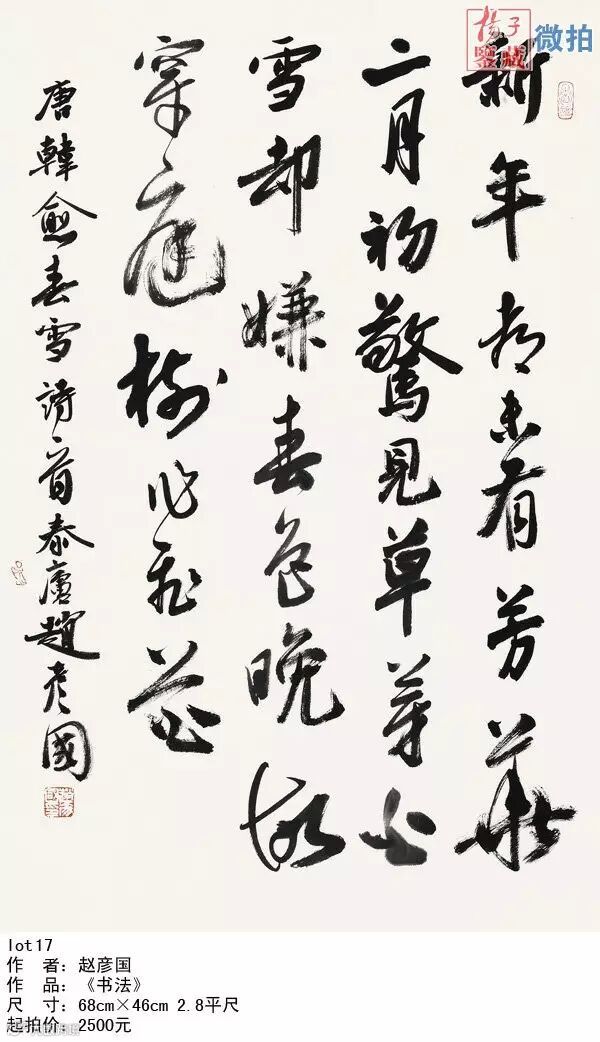 揚子
鑒藏
微拍
新年都未有芳華
二月初驚見草芽白
雪却嫌春色晚故
穿庭樹作飛花
唐韓愈春雪詩一首泰廬趙彥國
lot17
作 者：赵彦国
作 品：《书法》
尺 寸：68cm×46cm 2.8平尺
起拍价：2500元